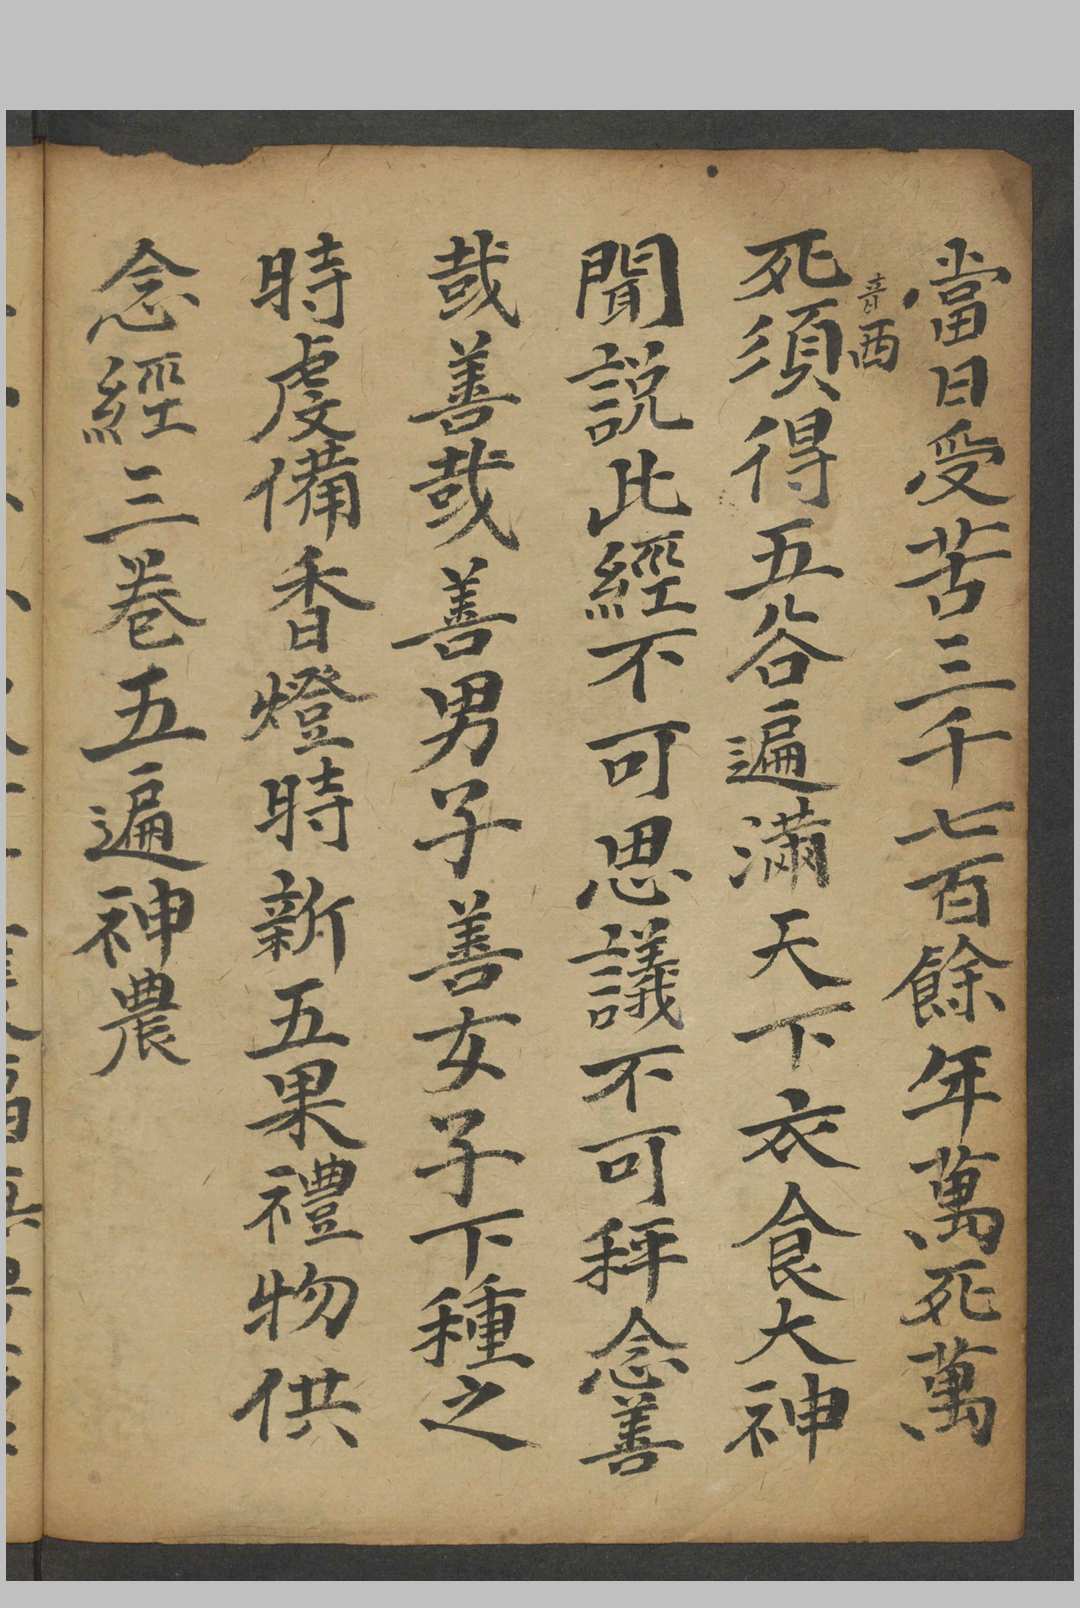 當日受苦三千七百餘年萬死萬
死須得五谷遍滿天下衣食大神
西
聞說此經不可思議不可秤念善
哉善哉善男子善女子下種之
時虔備香燈時新五果禮物供
念經三卷五遍神農